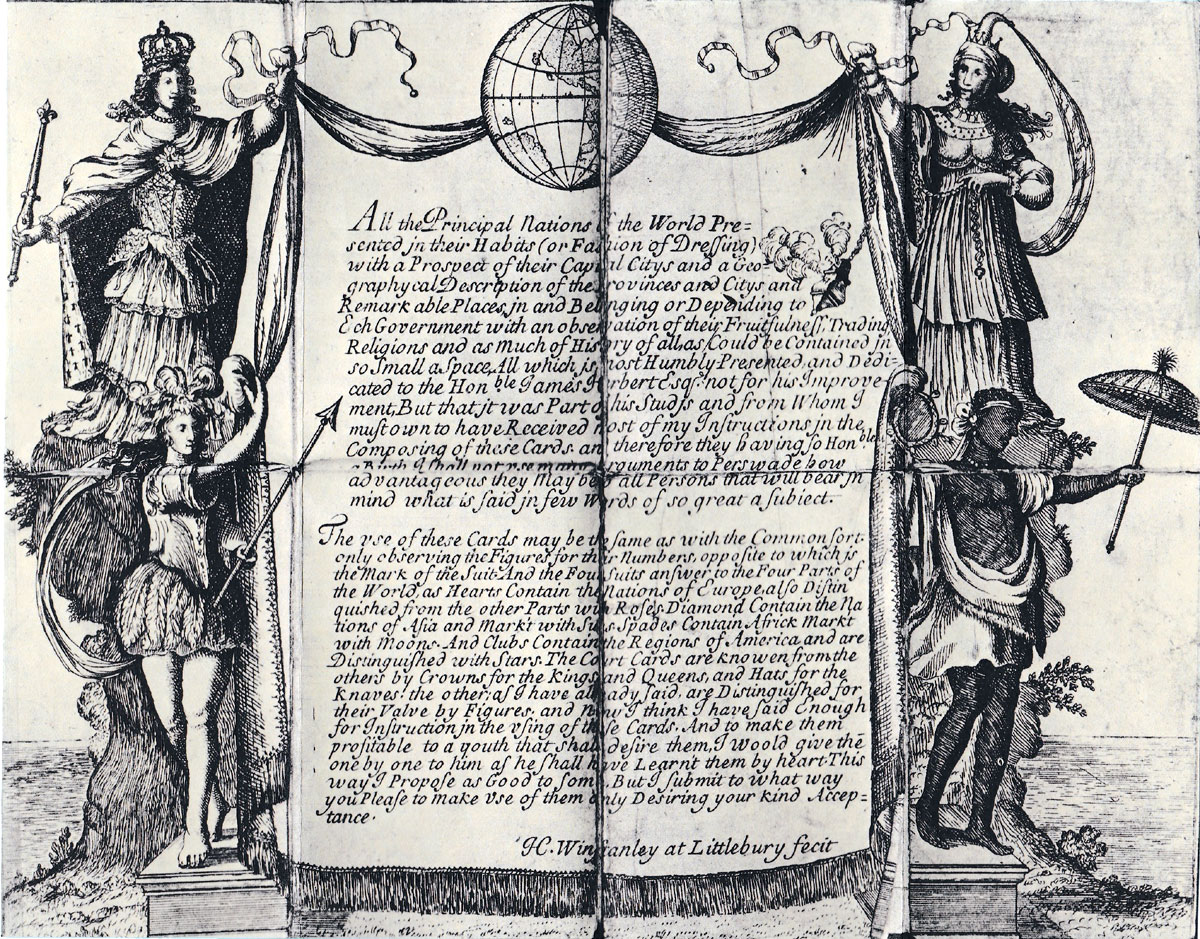 All the Principal Nations of the World Pre=
sented jn their Habits (or Fashion of Dreſsing)
with a Prospect of their Capital Citys and a Geo=
graphycal Description of the Provinces and Citys and
Remark able Places, jn and Belonging or Depending to
Ech Government with an observation of their Fruitfulneſs, Trading
Religions and as much of History of all, as Could be Contained jn
so Small a Space, All which is most Humbly Presented, and Dedi=
cated to the Hon ble James Herbert Esqr. not for his Improve=
ment, But that, jt was Part of his Studjs and from Whom I
muſt own to have Received most of my Jnſtructions jn the
Composing of these Cards. and therefore they having so Honble
a Birth I shall not vse many Arguments to Perswade how
advantageous they May be to all Persons that will bear jn
mind what is said jn few Words of so great a subiect.
The vse of these Cards may be the same as with the Common sort.
only observing the Figures for their Numbers, opposite to which is
the Mark of the Suit. And the Four Suits anſwer, to the Four Parts of
the World, as Hearts Contain the Nations of Europe, also Diſtin
quished from the other Parts with Roses, Diamond Contain the Na
tions of Asia and Markt with Suns Spades Contain Africk Markt
with Moons. And Clubs Contain the Regions of America, and are
Diſtinguished with Stars. The Court Cards are knowen from the
others by Crowns for the Kings and Queens, and Hats for the
Knaves: the other, as I have already said, are Diſtinguiſhed for
their Valve by Figures. and Now I think I have said Enough
for Inſtruction jn the vſing of these Cards. And to make them
profitable to a youth that shall deſire them, I woold give the
one by one to him as he shall have Learnt them by heart. This
way I Propoſe as Good to som, But I ſubmit to what way
you Pleaſe to make vse of them only Deſiring your kind Accep=
tance.
H. Winstanley at Littlebury fecit